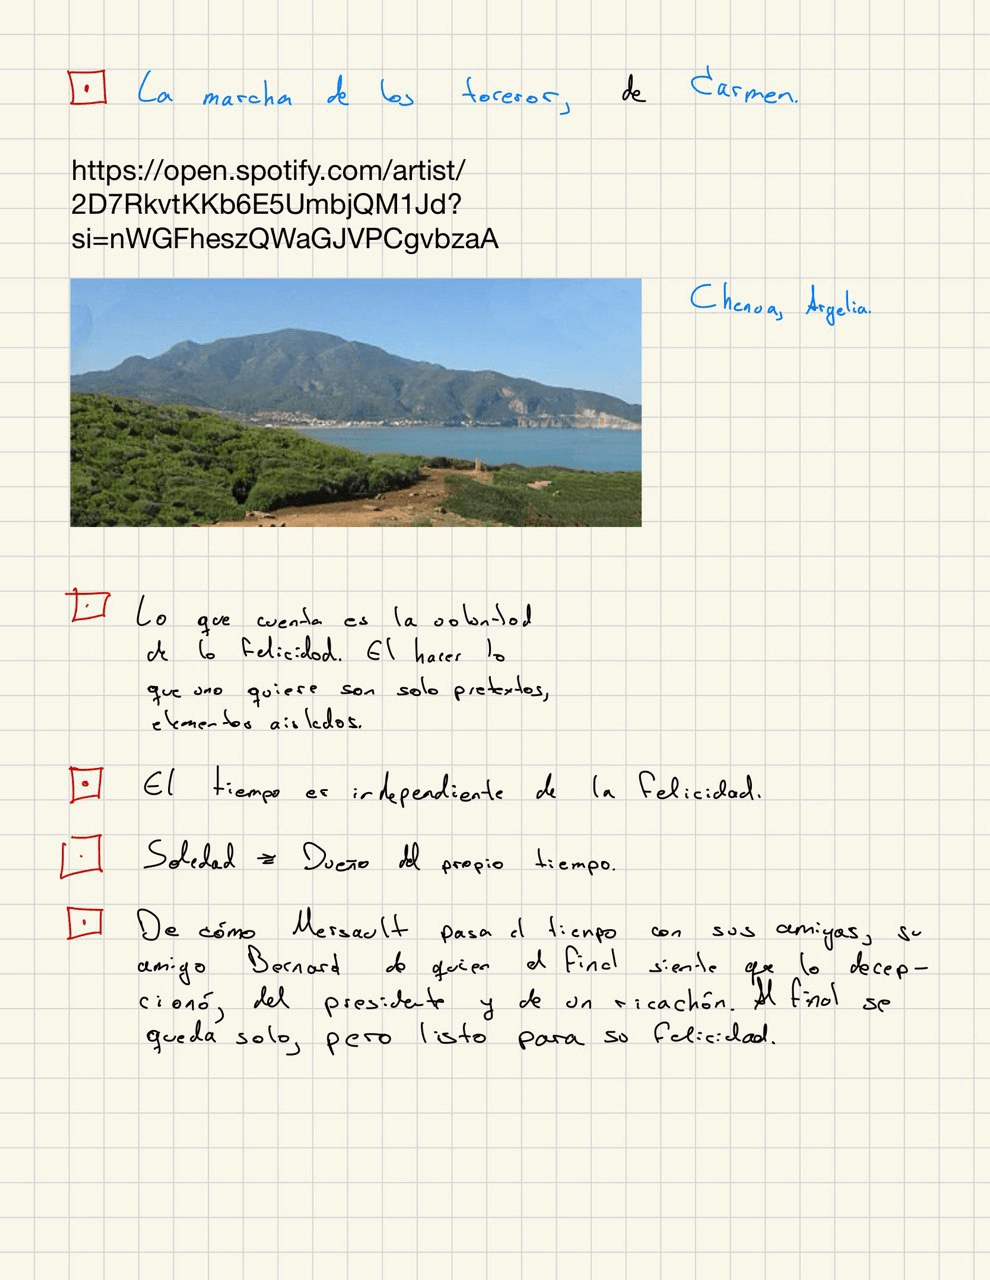 La marcha de los toreros, de Carmen.
https://open.spotify.com/artist/
2D7RkvtKKb6E5UmbjQM1Jd?
si=nWGFheszQWaGJVPCgvbzaA
Chenoa, Argelia.
Lo que cuenta es la voluntad
de la felicidad. El hacer lo
que uno quiere son solo pretextos,
elementos aislados.
El tiempo es independiente de la felicidad.
Soledad ≥ Dueño del propio tiempo.
De cómo Mersault pasa el tiempo con sus amigas, su
amigo Bernard de quien al final siente que lo decep-
cionó, del presidente y de un ricachón. Al final se
queda solo, pero listo para su felicidad.